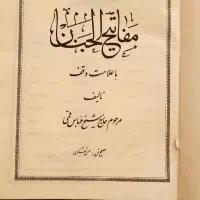 مفاتیح الجنان
با علامت وقف
تألیف
مرحوم حاج شیخ عباس قمی